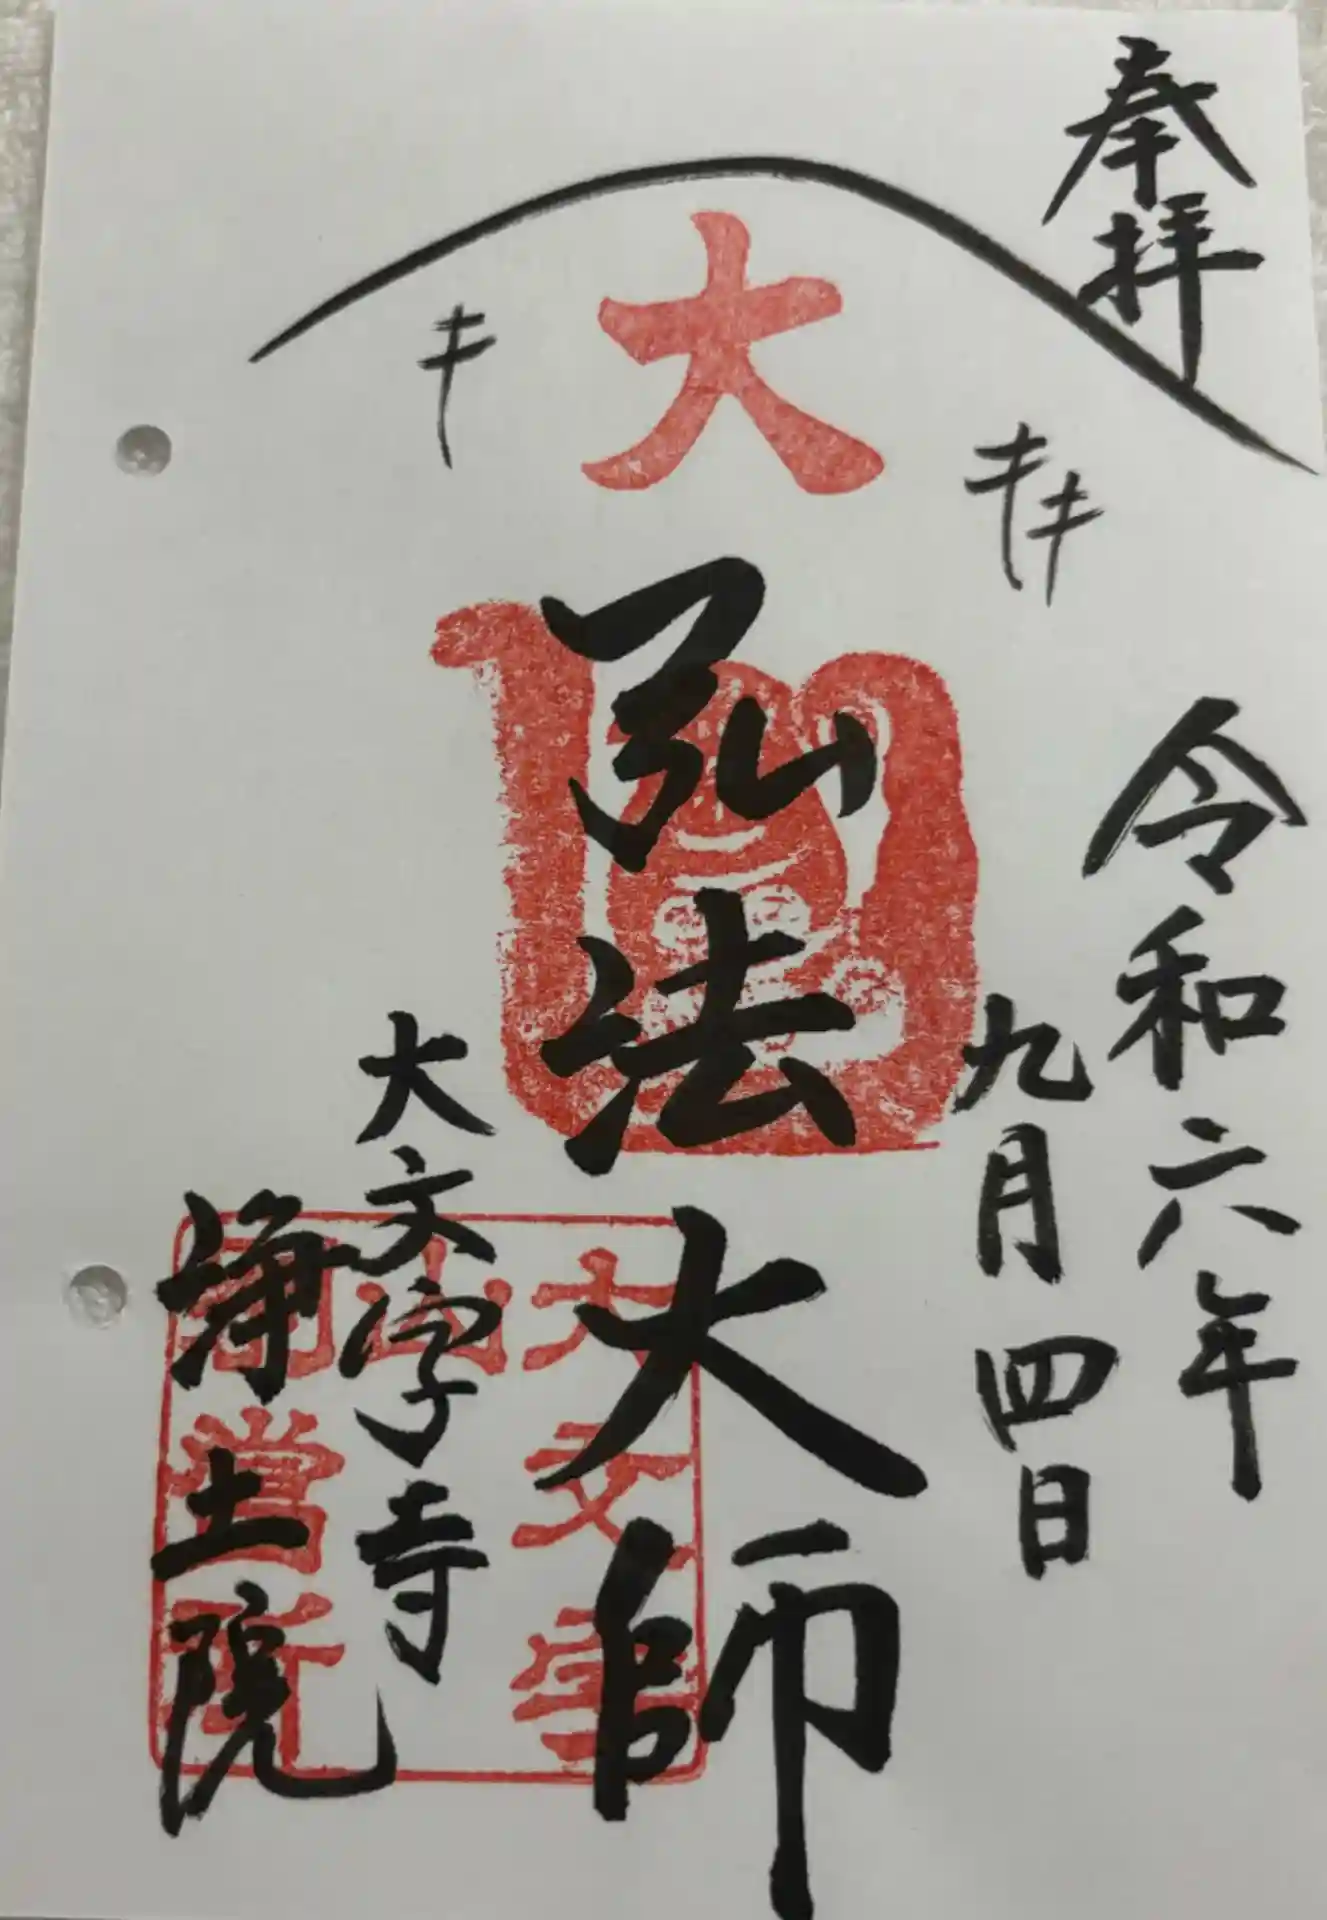 奉拝
令和六年
九月四日
大
弘法大師
大文字
山
大文字寺
浄土院